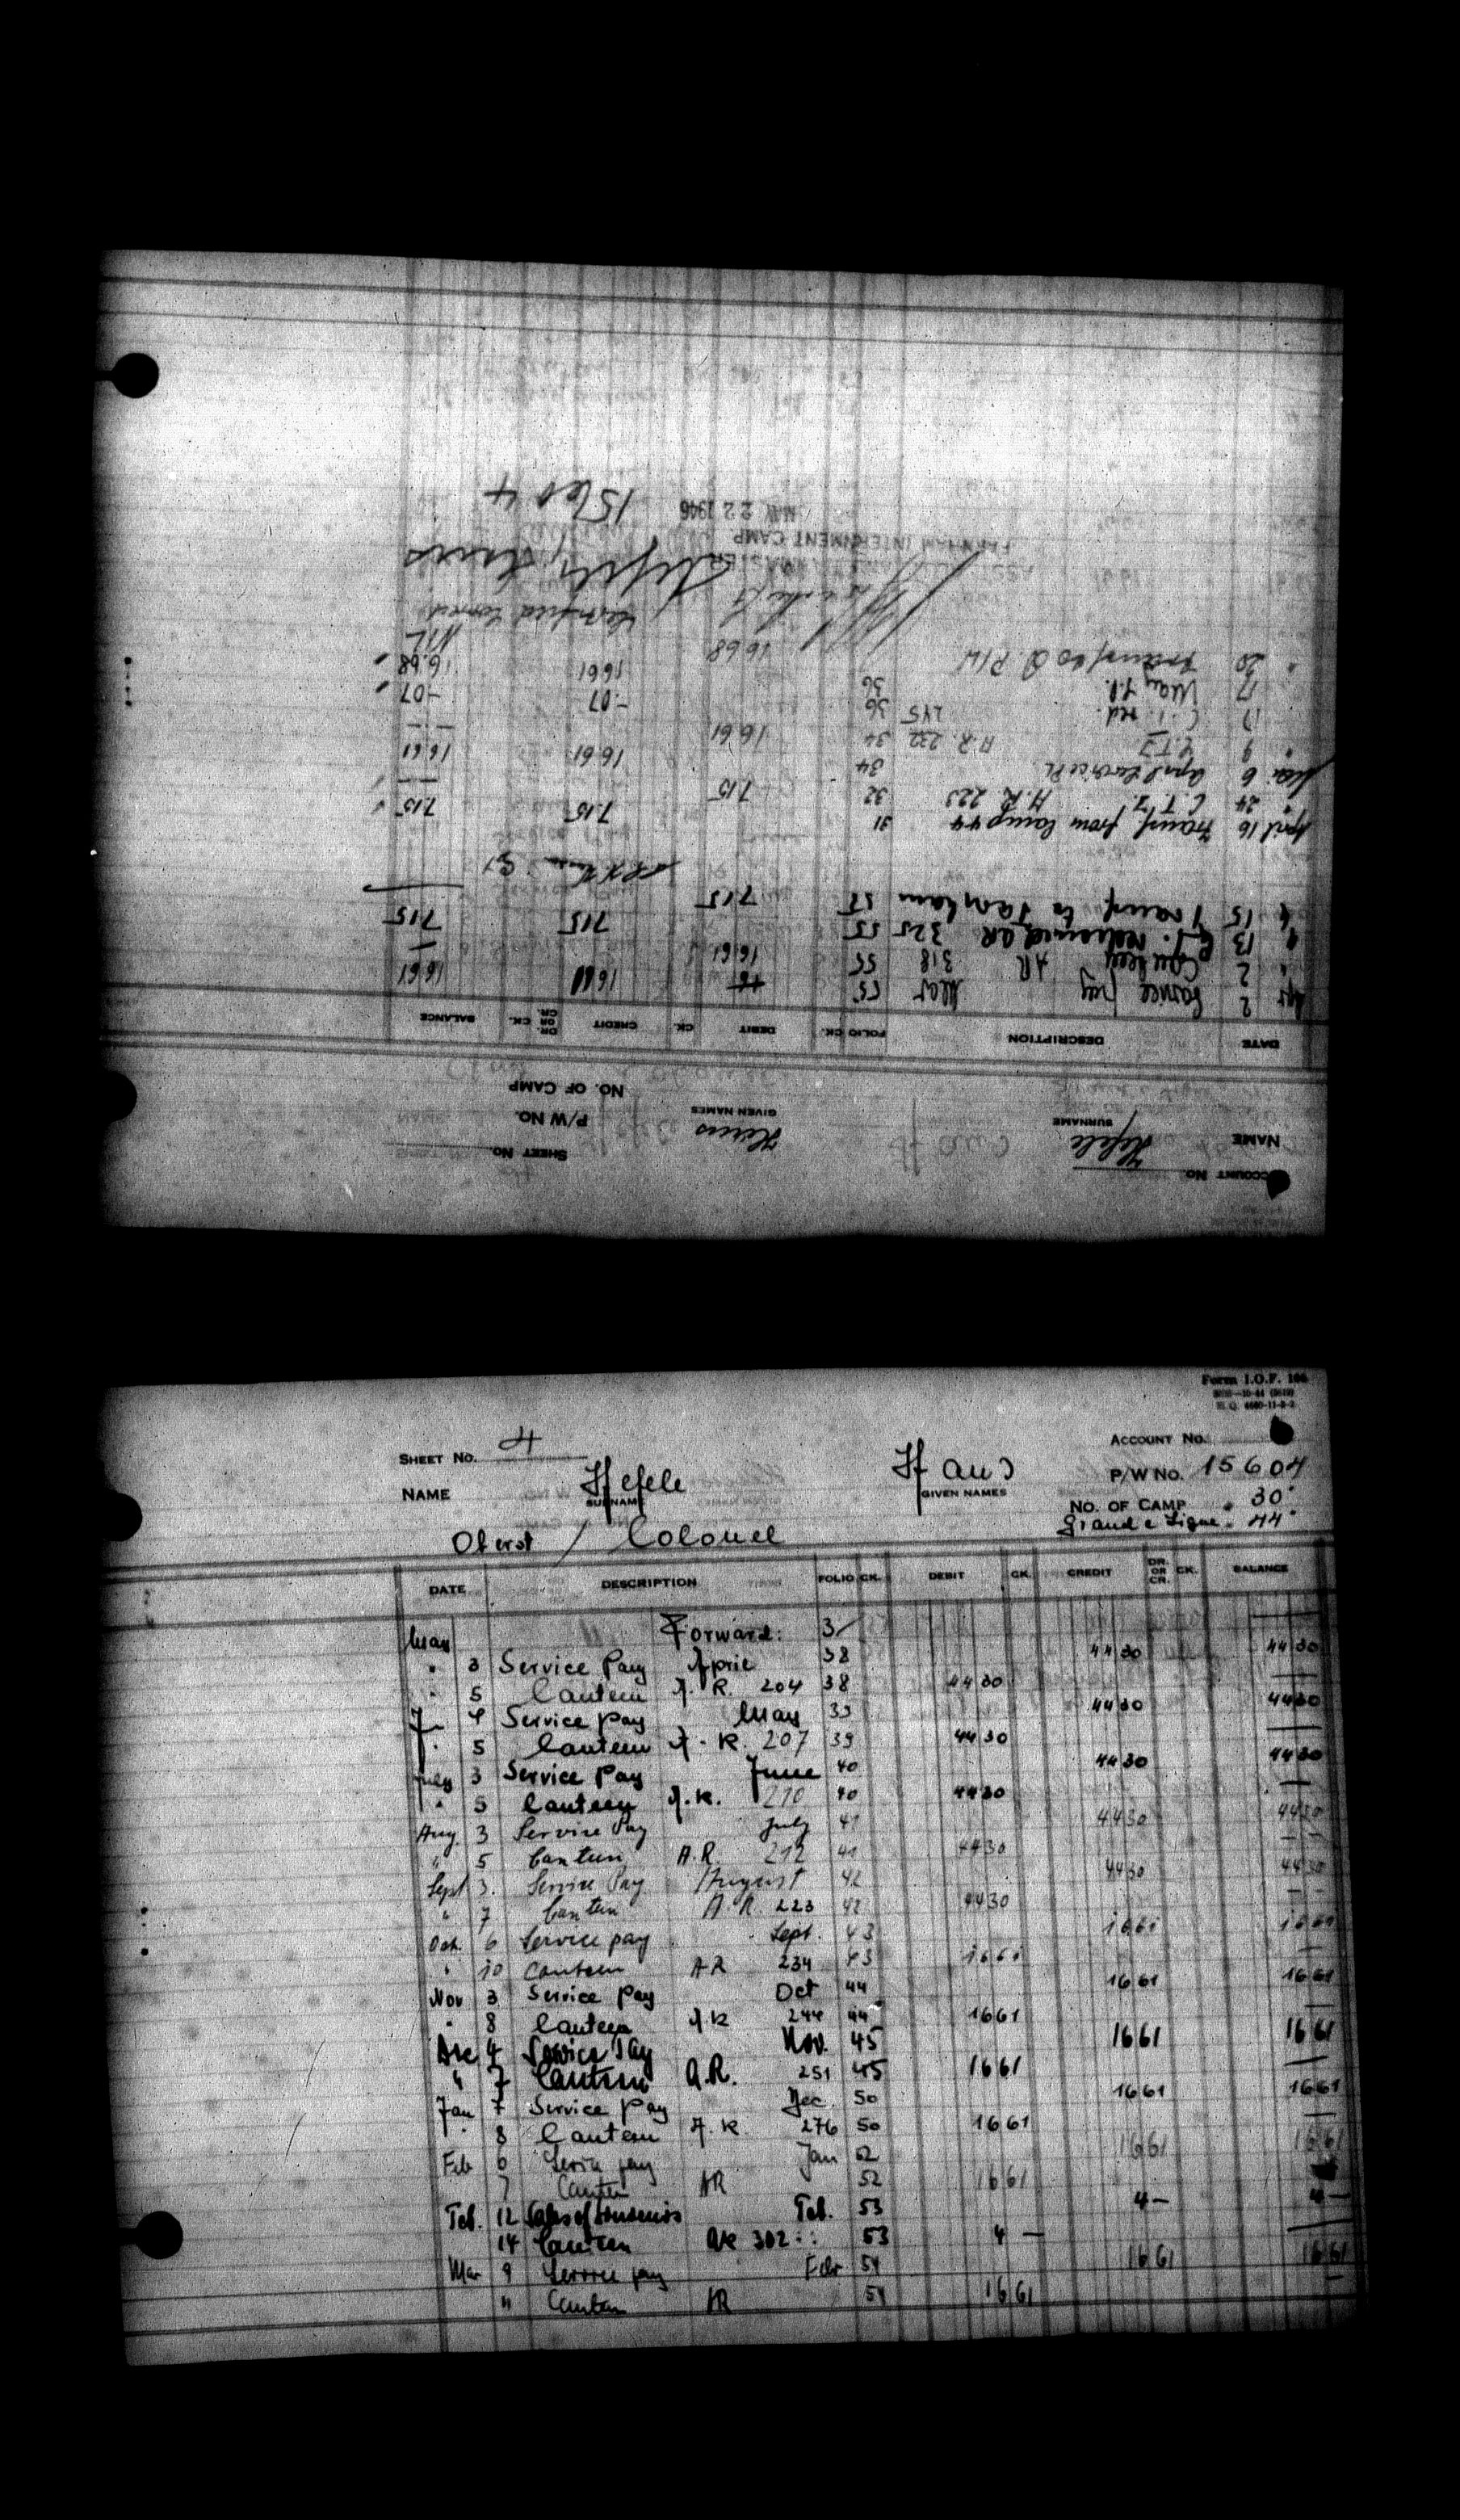 Form I.O.F. 166
SHEET No. 4 ACCOUNT No.
NAME Hefele Hans P/W No. 15604
SURNAME GIVEN NAMES
NO. OF CAMP 30
Oberst / Colonel Grande Ligne 44
DATE DESCRIPTION FOLIO CK. DEBIT CK. CREDIT DR. OR CR. CK. BALANCE
May Forward:
" 3 Service Pay April 38 44 30 44 30
" 5 Canteen A. R. 204 38 44 30 —
4 Service pay May 39 44 30 44 30
" 5 Canteen A. R. 207 39 44 30 —
July 3 Service Pay June 40 44 30 44 30
" 5 Canteen A. R. 210 40 44 30 —
Aug. 3 Service Pay July 41 44 30 44 30
" 5 Canteen A.R. 212 41 44 30 —
Sept 3. Service Pay August 42 44 30 44 30
" 7 Canteen A.R. 223 42 44 30 —
Oct. 6 Service pay Sept. 43 16 61 16 61
" 10 Canteen AR 234 43 16 61 —
Nov 3 Service pay Oct 44 16 61 16 61
" 8 Canteen AR 244 44 16 61 —
Dec 4 Service Pay Nov. 45 16 61 16 61
" 7 Canteen A.R. 251 45 16 61 —
Jan 7 Service Pay Dec. 50 16 61 16 61
" 8 Canteen A. R. 276 50 16 61 —
Feb 6 Service pay Jan 52 16 61 16 61
7 Canteen AR 52 16 61
Feb. 12 Sales of Feb. 53 4 — 4 —
14 Canteen AR 302 53 4 — —
Mar 9 Service pay Febr 54 16 61 16 61
" Canteen AR 54 16 61 —
ACCOUNT No. SHEET No.
NAME Hefele Hans P/W No.
SURNAME GIVEN NAMES NO. OF CAMP
DATE DESCRIPTION FOLIO CK. DEBIT CK. CREDIT DR. OR CR. CK. BALANCE
Apr 2 Service pay Mar 55 16 61 16 61
" 2 Canteen AR 318 55 16 61 —
" 13 redeemed AR 325 55 7 15 7 15
" 15 Transf. to Farnham 57 7 15 —
April 16 Transf. from Camp 44 31 7.15 7.15
" 24 C.T.I. A.R. 223 32 7.15 —
Mai 6 April Service Pt. 34 16 61 16 61
" 9 C.T.I. A.R. 232 34 16 61 —
17 red. 245 36 -.07 -.07
17 May 36 16 61 16.68
" 20 Transf. to D. P/W 16 68 NIL
Certified correct
Hefele, Hans
FARNHAM INTERNMENT CAMP
MAY 22 1946
15604